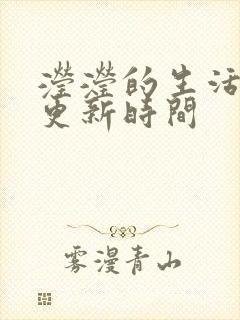 瀅瀅的生活
更新時間
雾漫青山